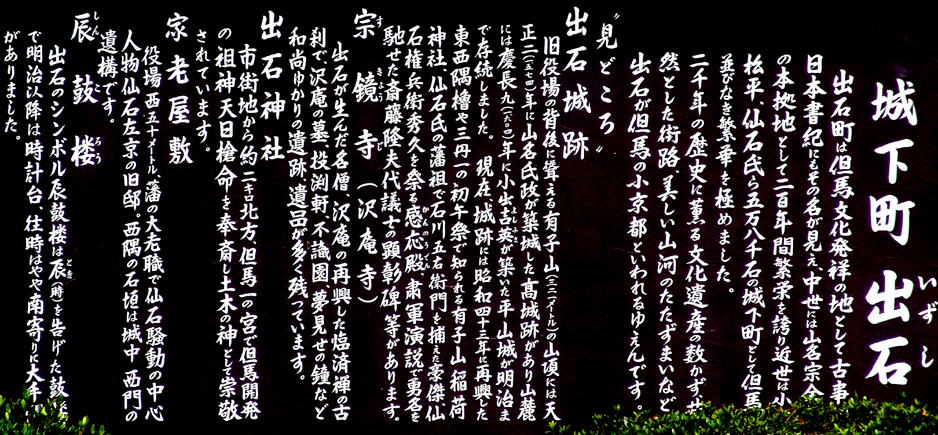 城下町 出石
いずし
出石町は但馬文化発祥の地として古事
日本書紀にもその名が見え、中世には山名宗全
の本拠地として二百年間繁栄を誇り近世は小
松平、仙石氏ら五万八千石の城下町として但馬
並びなき繁華を極めました。
二千年の歴史に薫る文化遺産の数かず
然とした街路、美しい山河のたたずまいなど
出石が但馬の小京都といわれるゆえんです。
〃見どころ〃
出石城跡
旧役場の背後に聳える有子山(三二一メートル)の山頂には天
正二(一五七四)年に山名氏政が築城した高城跡があり山麓
には慶長九(一六〇四)年に小出吉英が築いた平山城が明治ま
で存続しました。現在、城跡には昭和四十三年に再興した
東西隅櫓や三丹一の初午祭で知られる有子山稲荷
神社、仙石氏の藩祖で石川五右衛門を捕えた豪傑仙
石権兵衛秀久を祭る感応殿、粛軍演説で勇名を
馳せた斎藤隆夫代議士の顕彰碑等があります。
宗鏡寺(沢庵寺)
出石が生んだ名僧、沢庵の再興した臨済禅の古
刹で、沢庵の墓、投渕軒、不識園、夢見せの鐘など
和尚ゆかりの遺跡、遺品が多く残っています。
出石神社
市街地から約二キロ北方、但馬一の宮で但馬開発
の祖神、天日槍命を奉斎し土木の神として崇敬
されています。
家老屋敷
役場西五十メートル、藩の大老職で仙石騒動の中心
人物仙石左京の旧邸。西隅の石垣は城中、西門の
遺構です。
辰鼓楼
出石のシンボル辰鼓楼は辰(時)を告げた鼓
で明治以降は時計台、往時はやや南寄りに大手
がありました。